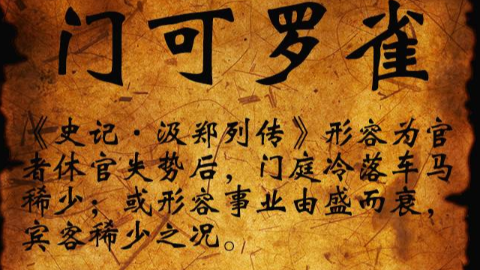 门可罗雀
《史记·汲郑列传》形容为官
者休官失势后，门庭冷落车马
稀少；或形容事业由盛而衰，
宾客稀少之况。